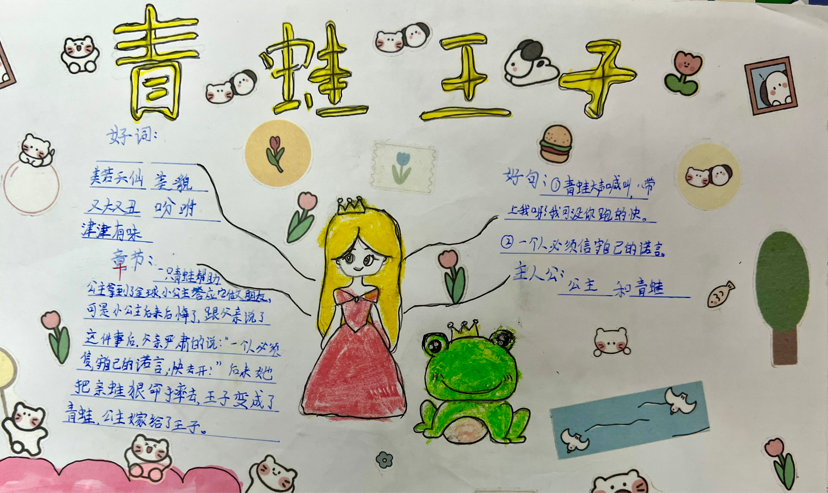 青蛙王子
好词：
美若天仙 姿貌
又大又丑 吩咐
津津有味
章节：
一只青蛙帮助
公主拿到了金球，小公主答应他做朋友，
可是小公主后来后悔了，跟父亲说了
这件事后，父亲严肃的说：“一个人必须
信守自己的诺言，快去开！”后来她
把青蛙狠命摔去，王子变成了
青蛙，公主嫁给了王子。
好句：①青蛙大声喊叫，带
上我呀！我可没你跑的快。
②一个人必须信守自己的诺言。
主人公：公主 和青蛙